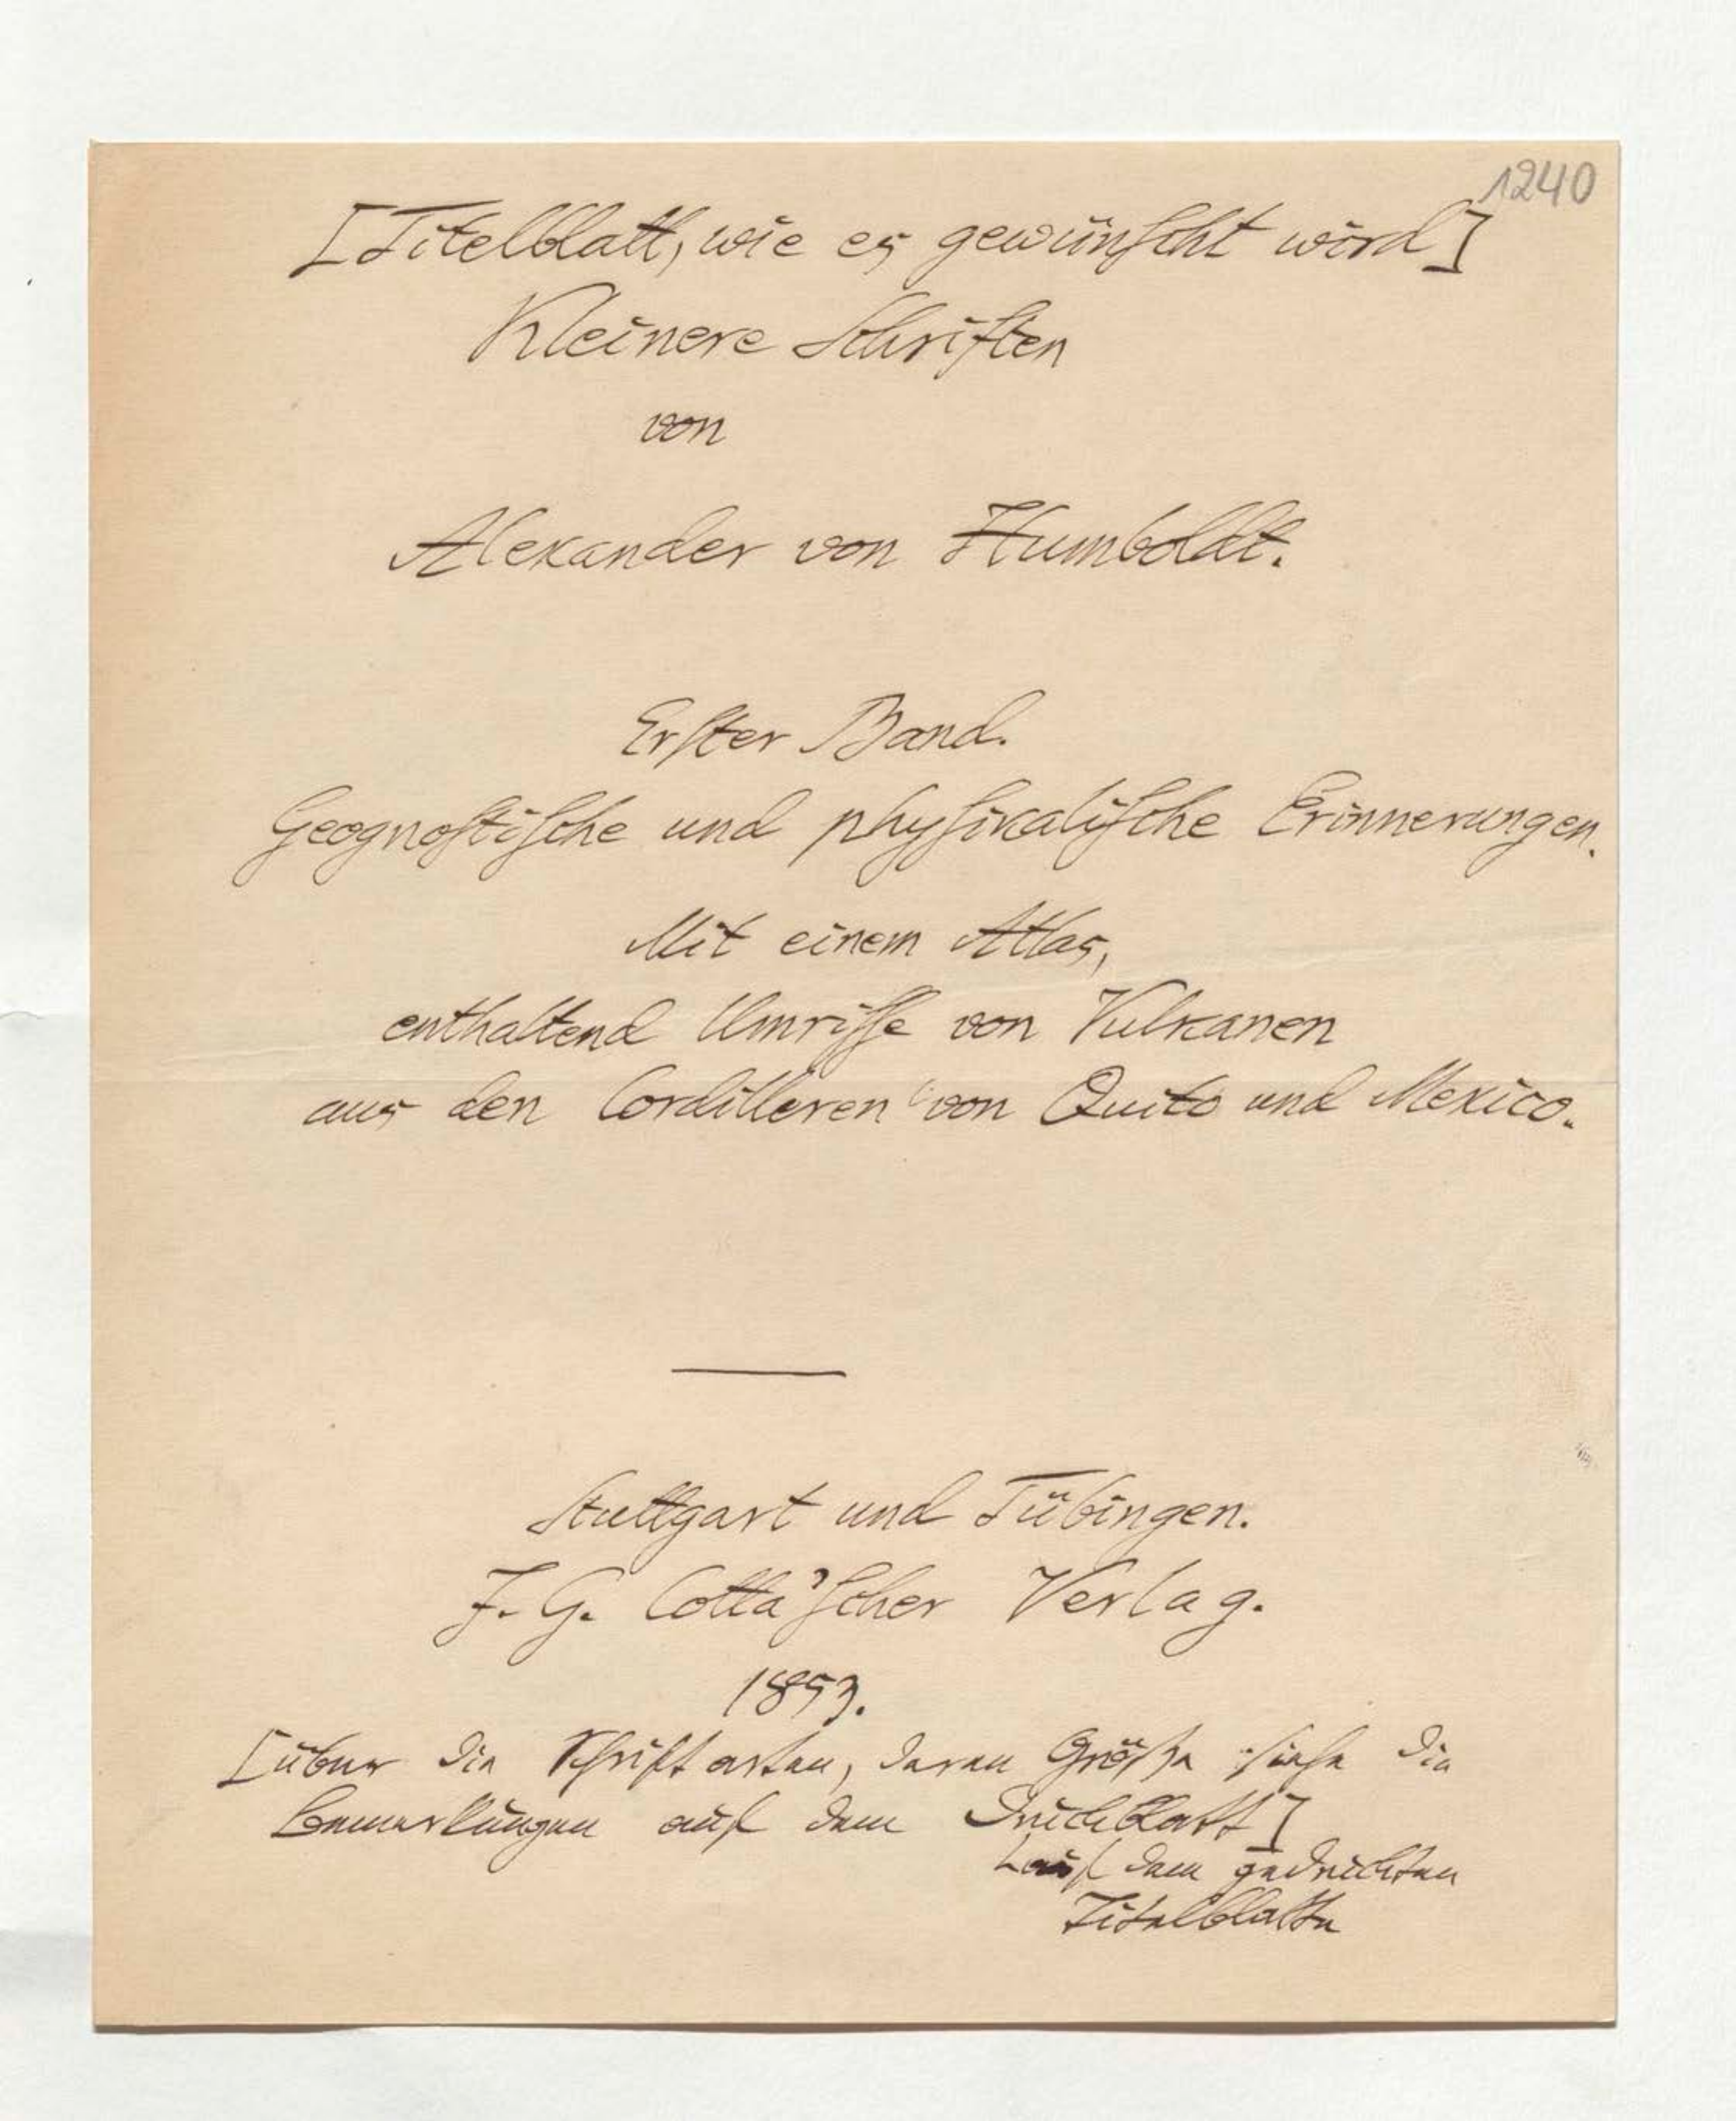 1240
[Titelblatt, wie es gewünſcht wird]
Kleinere Schriften
von
Alexander von Humboldt.
Erſter Band.
Geognoſtiſche und phyſikaliſche Erinnerungen.
Mit einem Atlas,
enthaltend Umriſſe von Vulkanen
aus den Cordilleren von Quito und Mexico.
Stuttgart und Tübingen.
J. G. Cotta'ſcher Verlag.
1853.
[über die Schriftarten, deren Größe ſiehe die
Bemerkungen auf dem Druckblatt]
auf dem gedruckten
Titelblatte